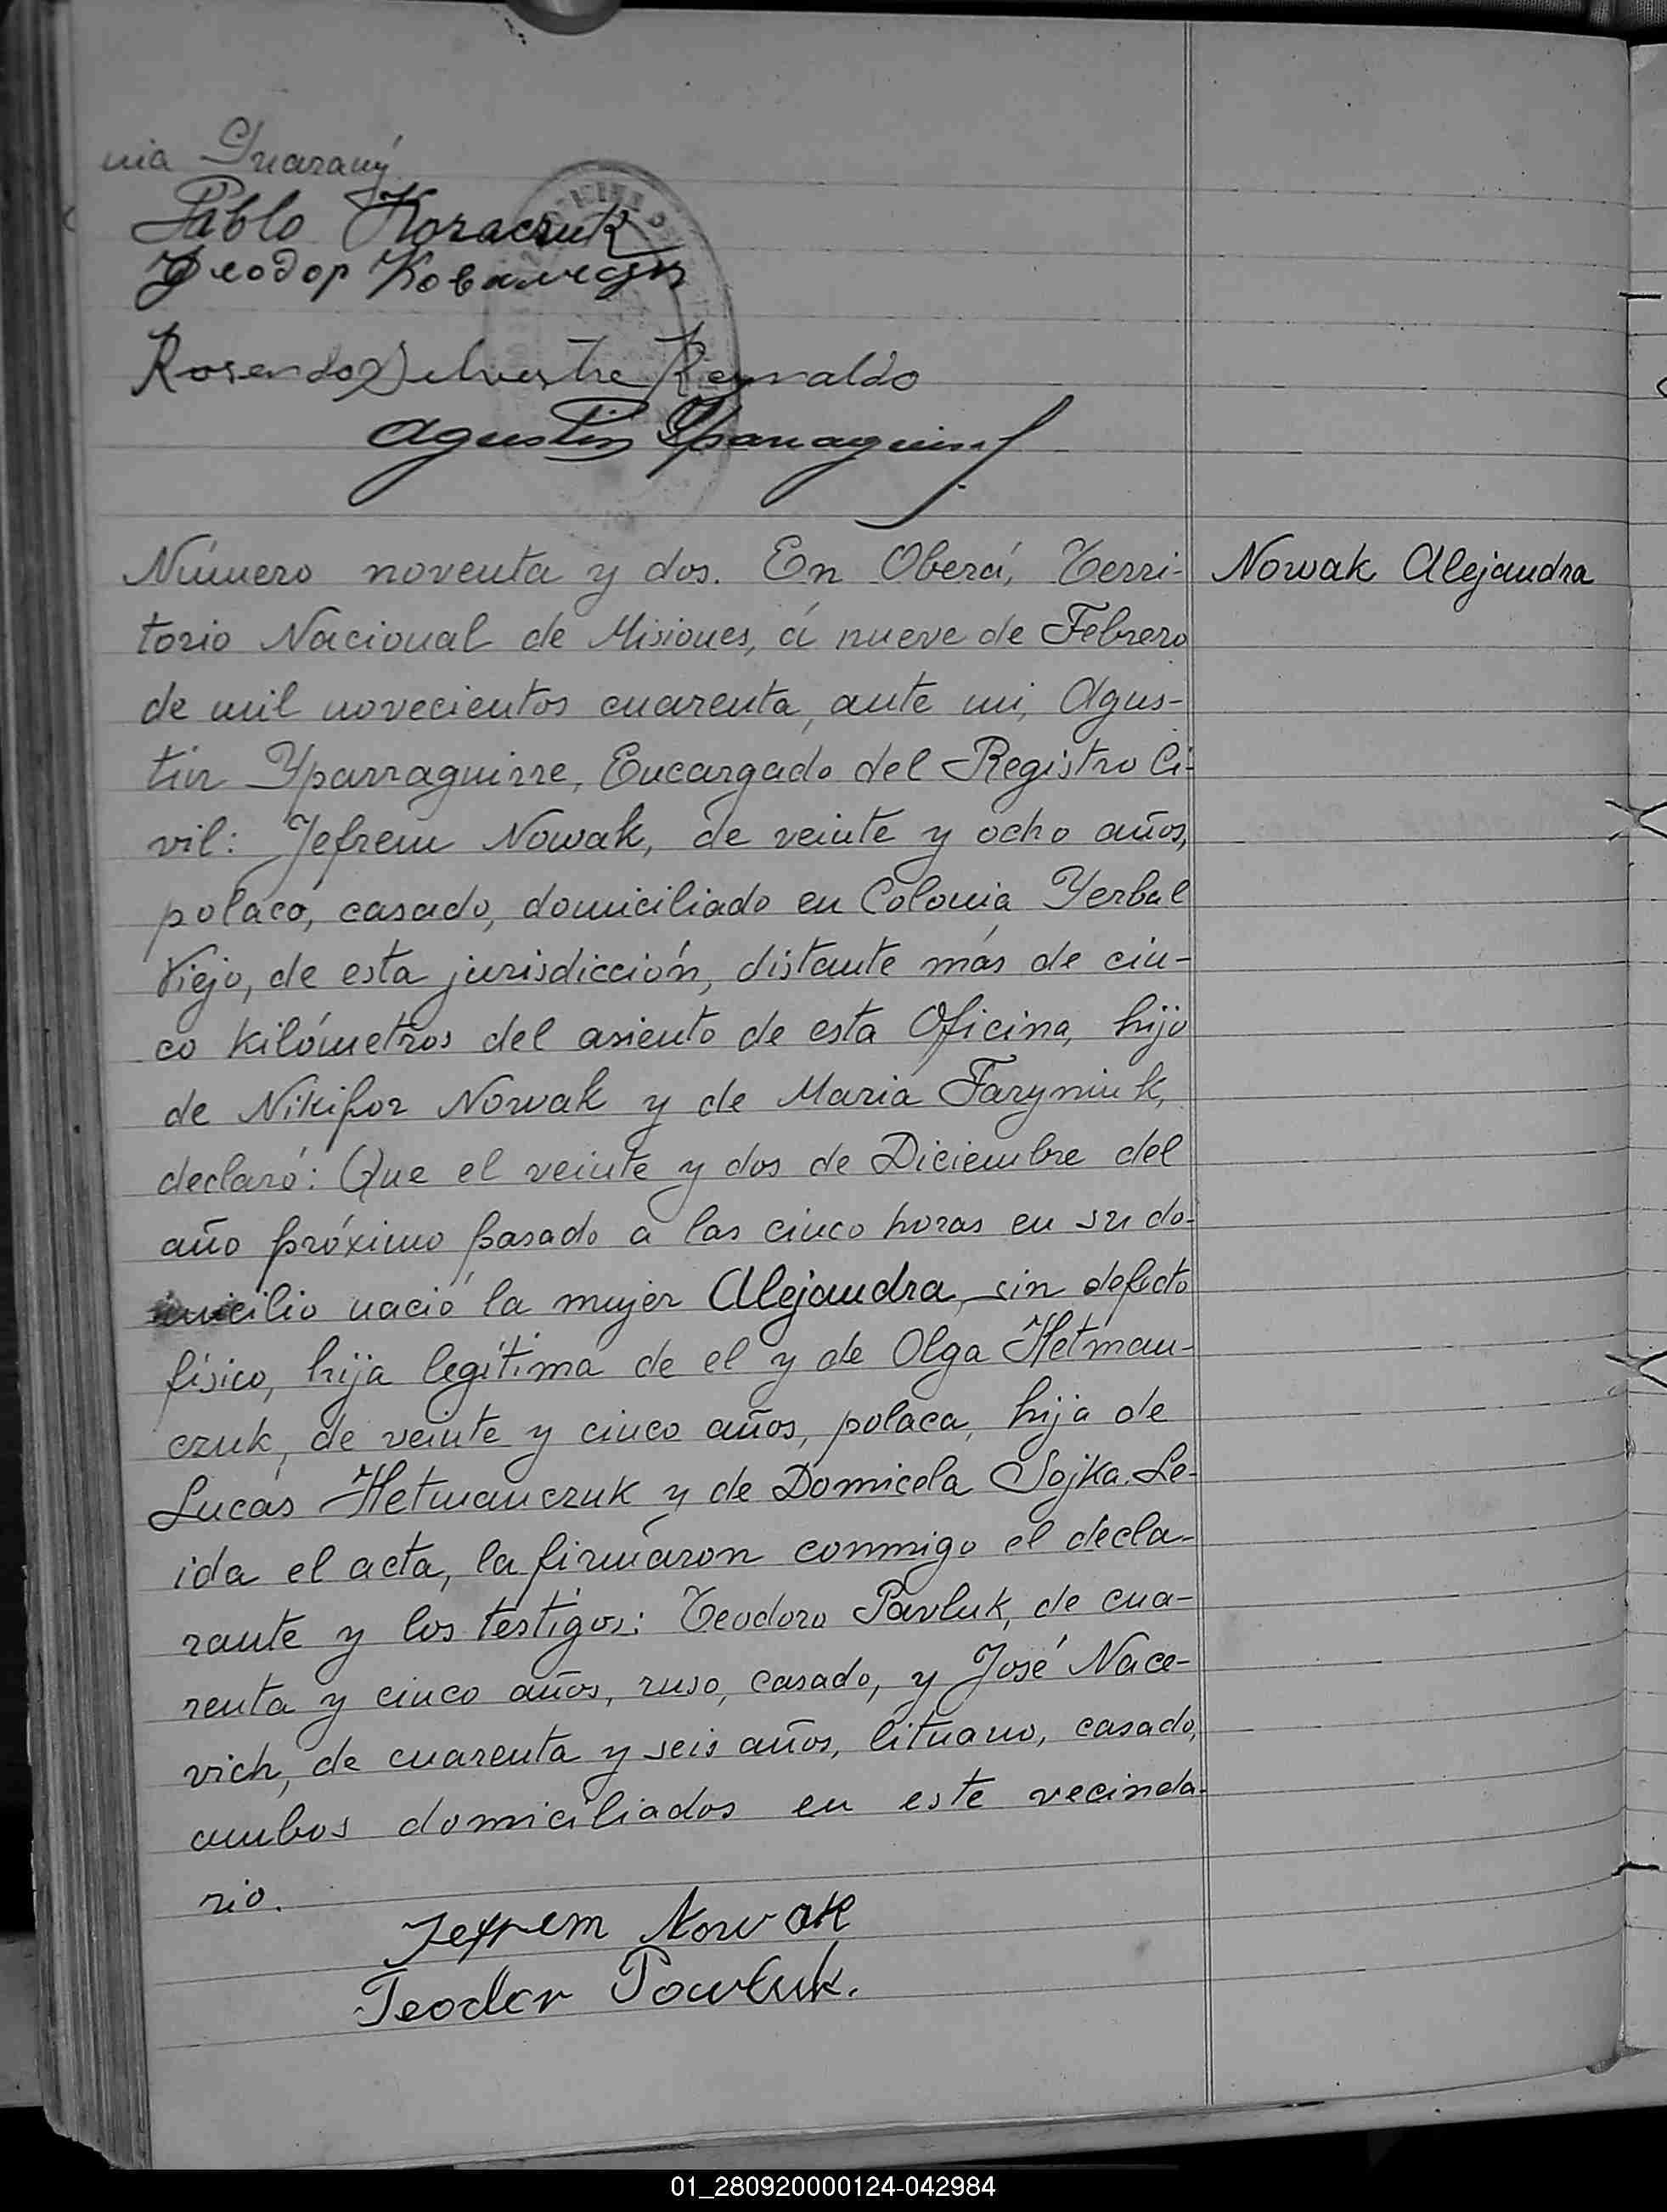 nia Guarany
Pablo Kozaczuk
Теодор Ковалчук
Rosendo Silvestre Reynaldo
Agustin Yparraguirre
Número noventa y dos. En Oberá, Terri-
Nowak Alejandra
torio Nacional de Misiones, á nueve de Febrero
de mil novecientos cuarenta, ante mi, Agus-
tin Yparraguirre, Encargado del Registro Ci-
vil: Jefrem Nowak, de veinte y ocho años,
polaco, casado, domiciliado en Colonia Yerbal
Viejo, de esta jurisdicción, distante más de cin-
co kilómetros del asiento de esta Oficina, hijo
de Nikifor Nowak y de Maria Faryniuk,
declaró: Que el veinte y dos de Diciembre del
año próximo pasado a las cinco horas en su do-
micilio nació la mujer Alejandra, sin defecto
físico, hija legítima de el y de Olga Hetman-
czuk, de veinte y cinco años, polaca, hija de
Lucas Hetmanczuk y de Domicela Sojka. Le-
ida el acta, la firmaron conmigo el decla-
rante y los testigos: Teodoro Pavluk, de cua-
renta y cinco años, ruso, casado, y José Nace-
vich, de cuarenta y seis años, lituano, casado,
ambos domiciliados en este vecinda-
rio.
Jefrem Nowak
Teodor Pawluk.
01_280920000124-042984